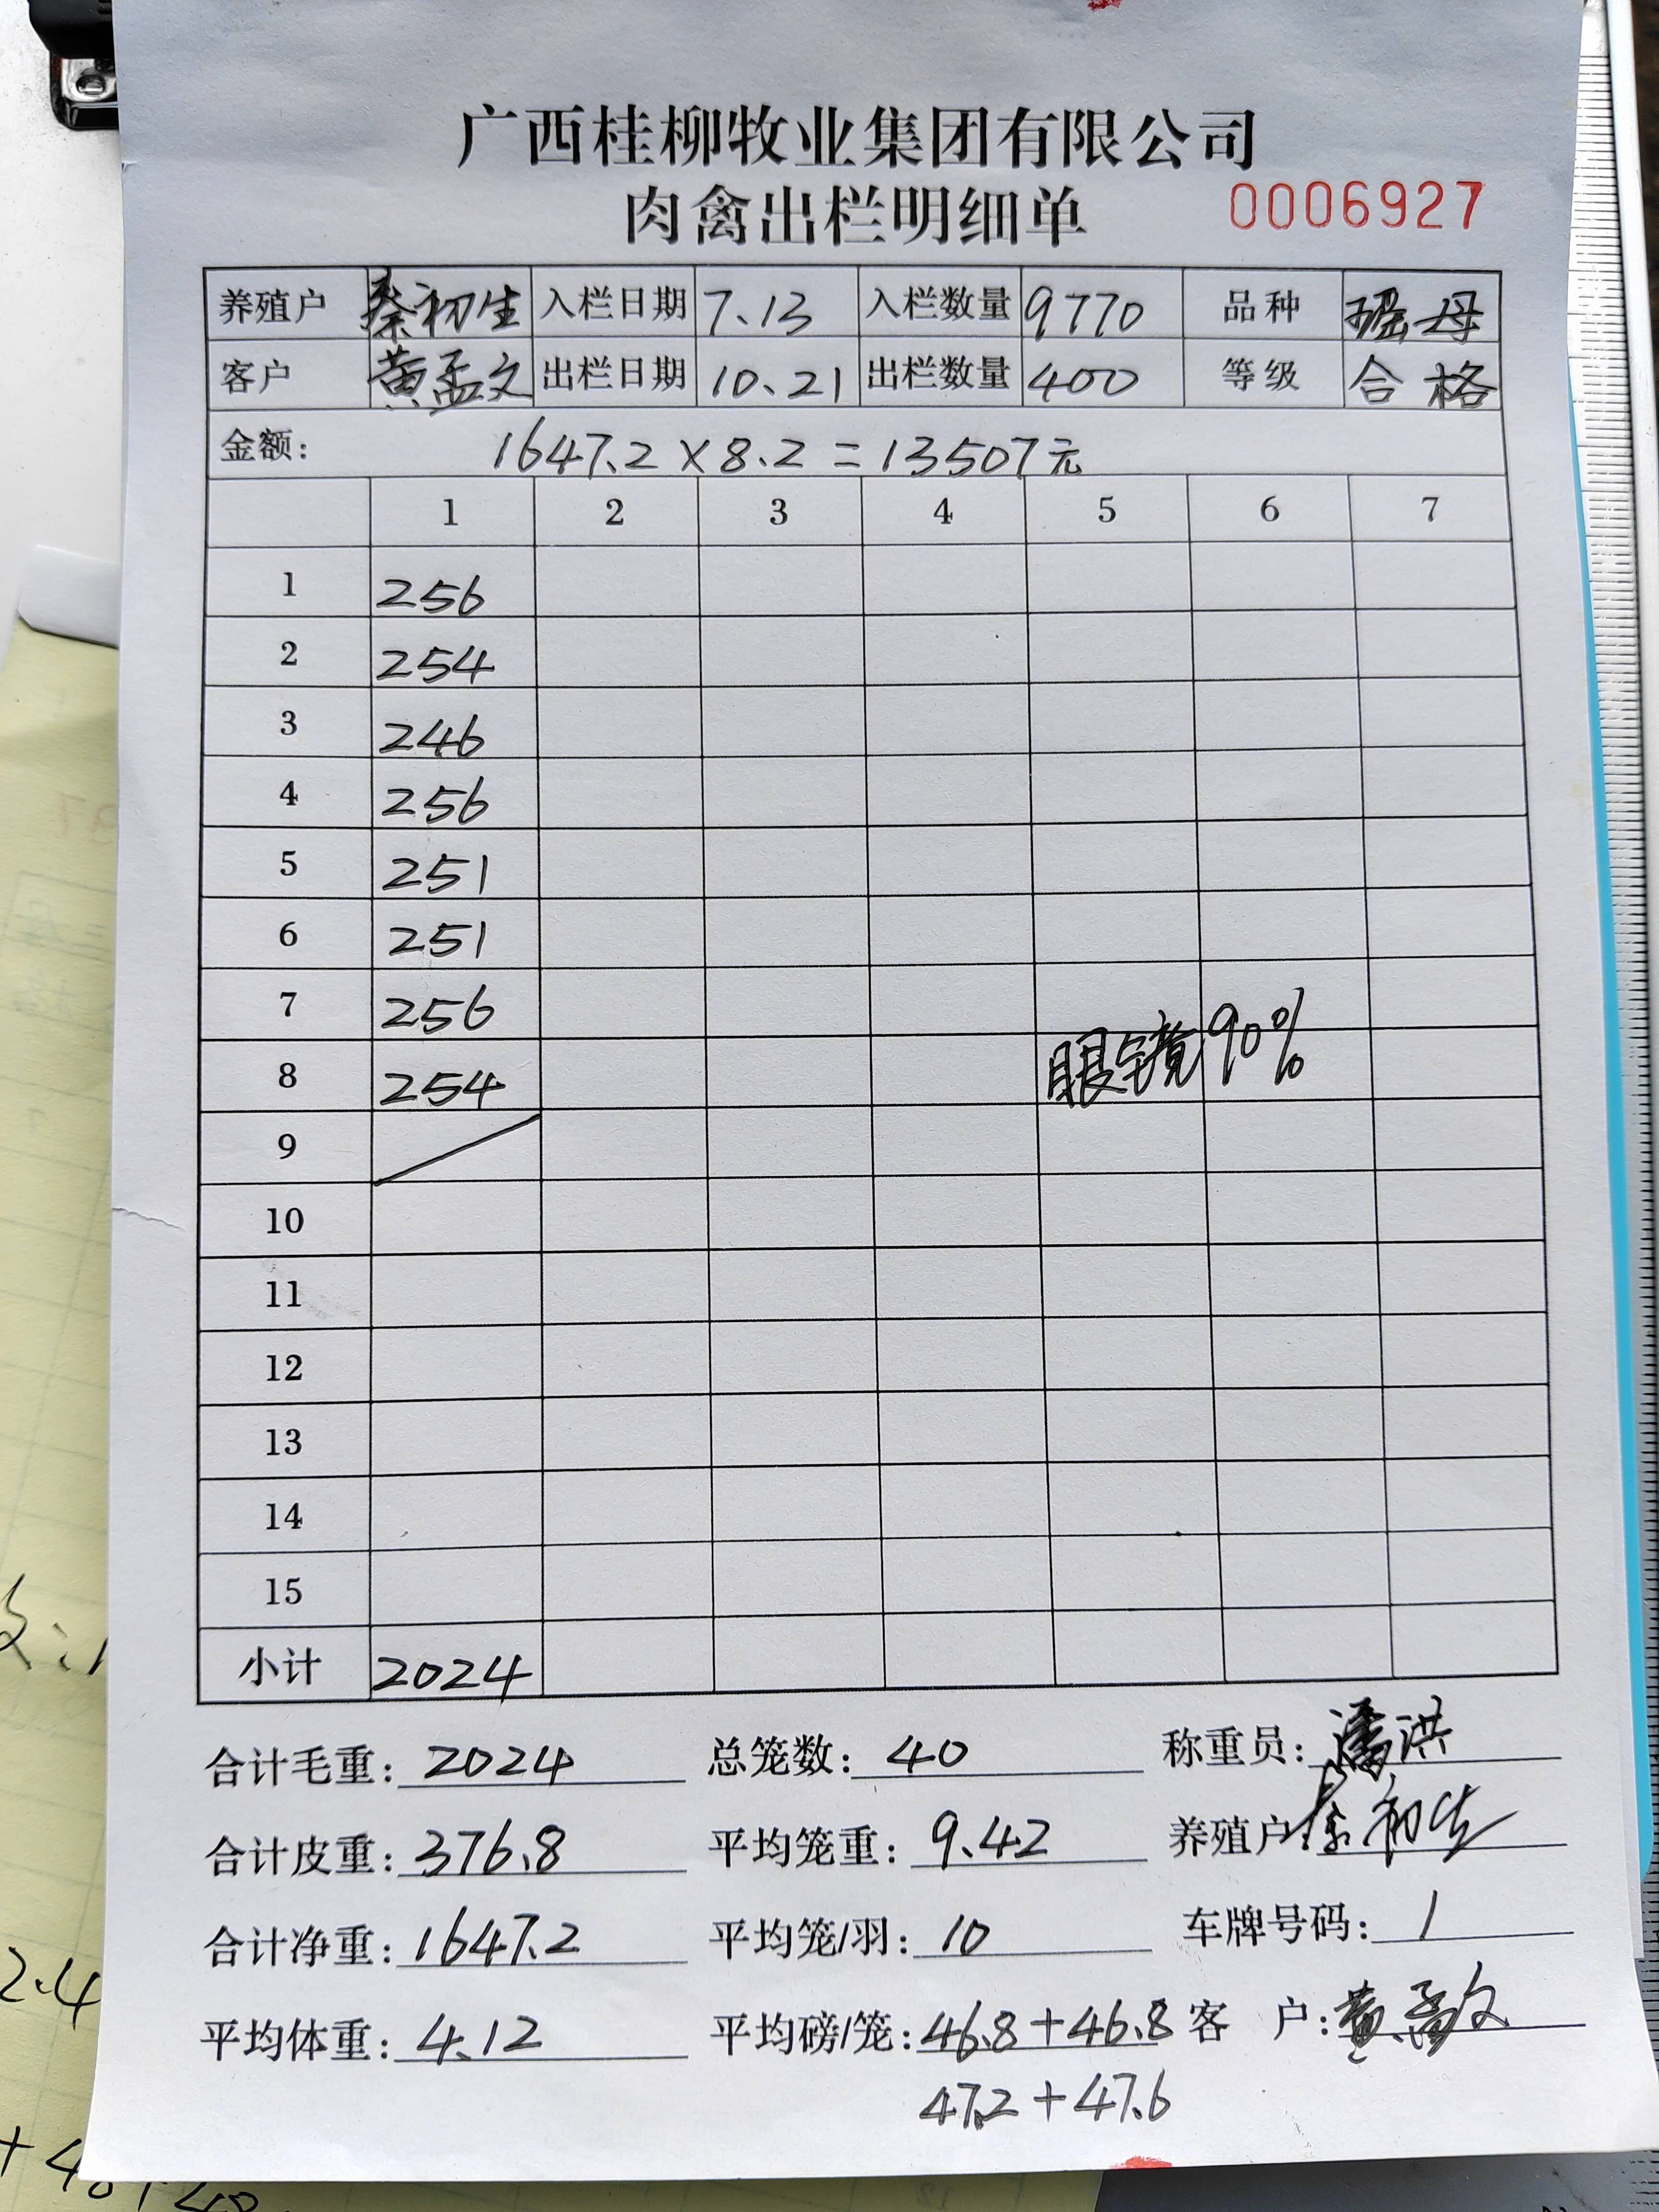 广西桂柳牧业集团有限公司
肉禽出栏明细单 0006927
养殖户 蔡初生 入栏日期 7.13 入栏数量 9770 品种 瑶母
客户 黄孟文 出栏日期 10.21 出栏数量 400 等级 合格
金额: 1647.2×8.2=13507元
1 2 3 4 5 6 7
1 256
2 254
3 246
4 256
5 251
6 251
7 256
8 254 眼镜90%
9
10
11
12
13
14
15
小计 2024
合计毛重: 2024 总笼数: 40 称重员: 潘洪
合计皮重: 376.8 平均笼重: 9.42 养殖户 蔡初生
合计净重: 1647.2 平均笼/羽: 10 车牌号码: 1
平均体重: 4.12 平均磅/笼: 46.8+46.8 客 户: 黄孟文
47.2+47.6